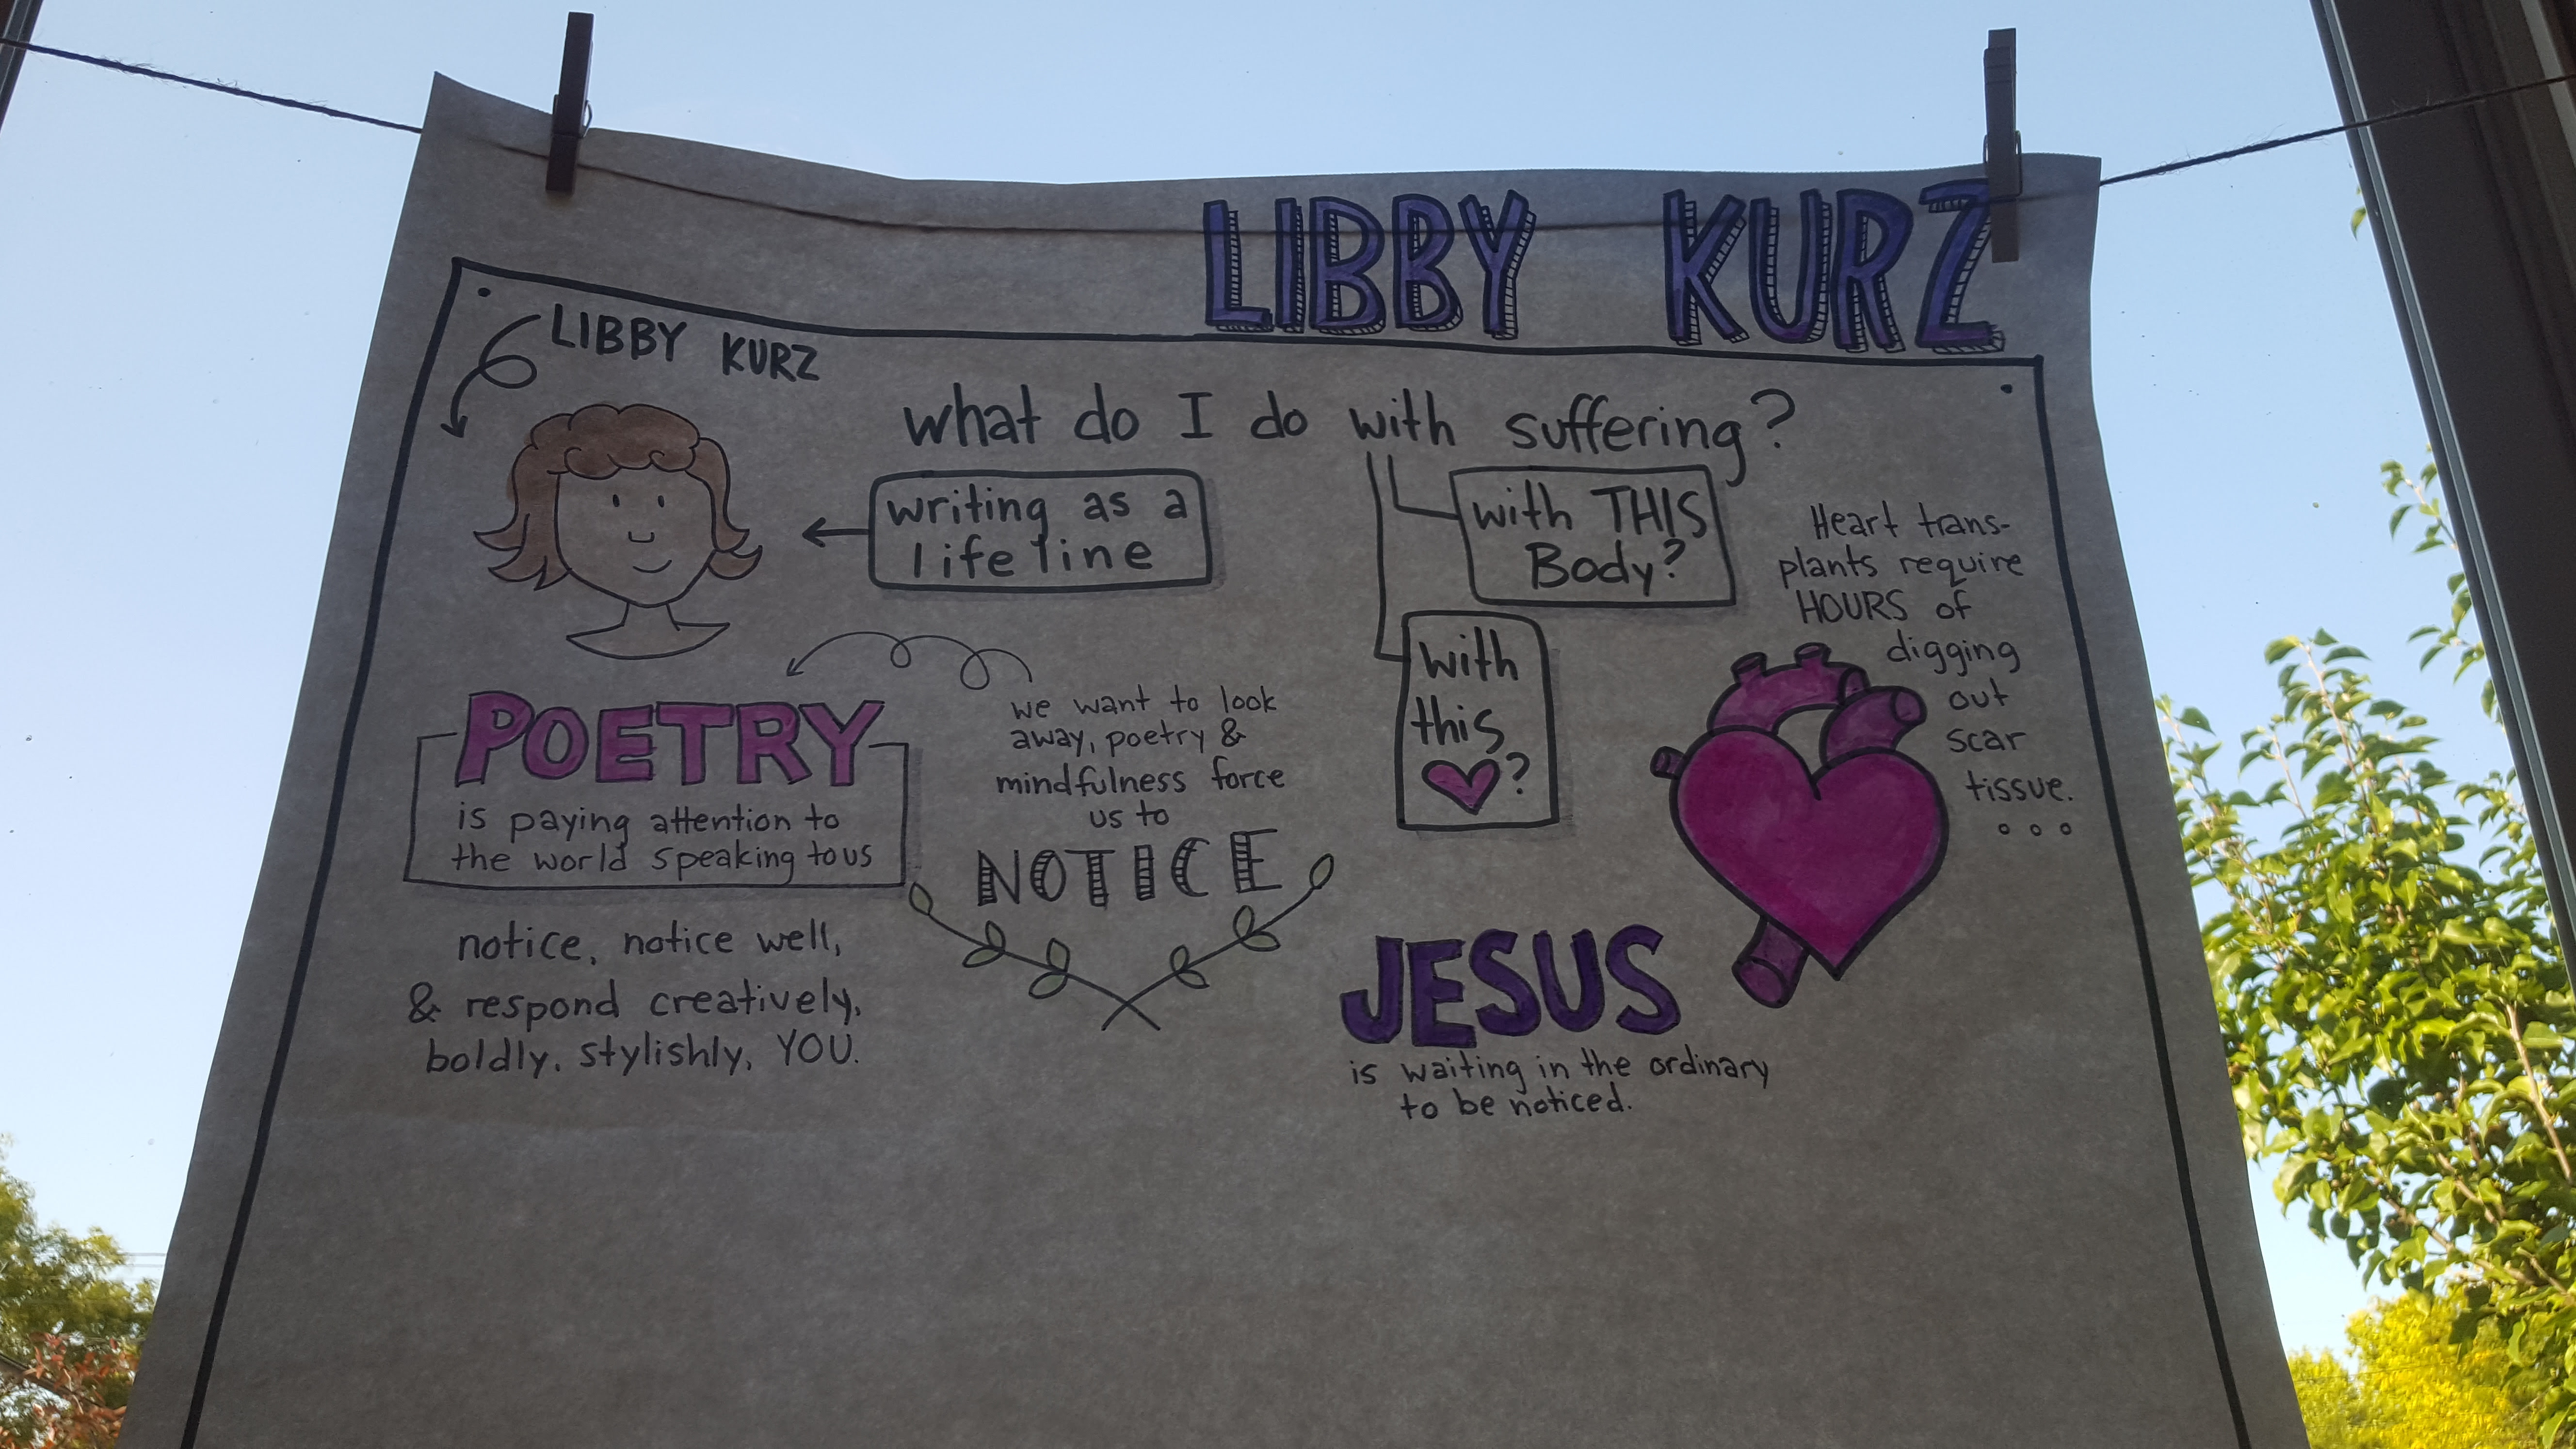 LIBBY KURZ
LIBBY KURZ
what do I do with suffering?
writing as a
lifeline
with THIS
Body?
with
this
?
Heart trans-
plants require
HOURS of
digging
out
scar
tissue.
...
POETRY
is paying attention to
the world speaking to us
we want to look
away, poetry &
mindfulness force
us to
NOTICE
notice, notice well,
& respond creatively,
boldly, stylishly, YOU.
JESUS
is waiting in the ordinary
to be noticed.